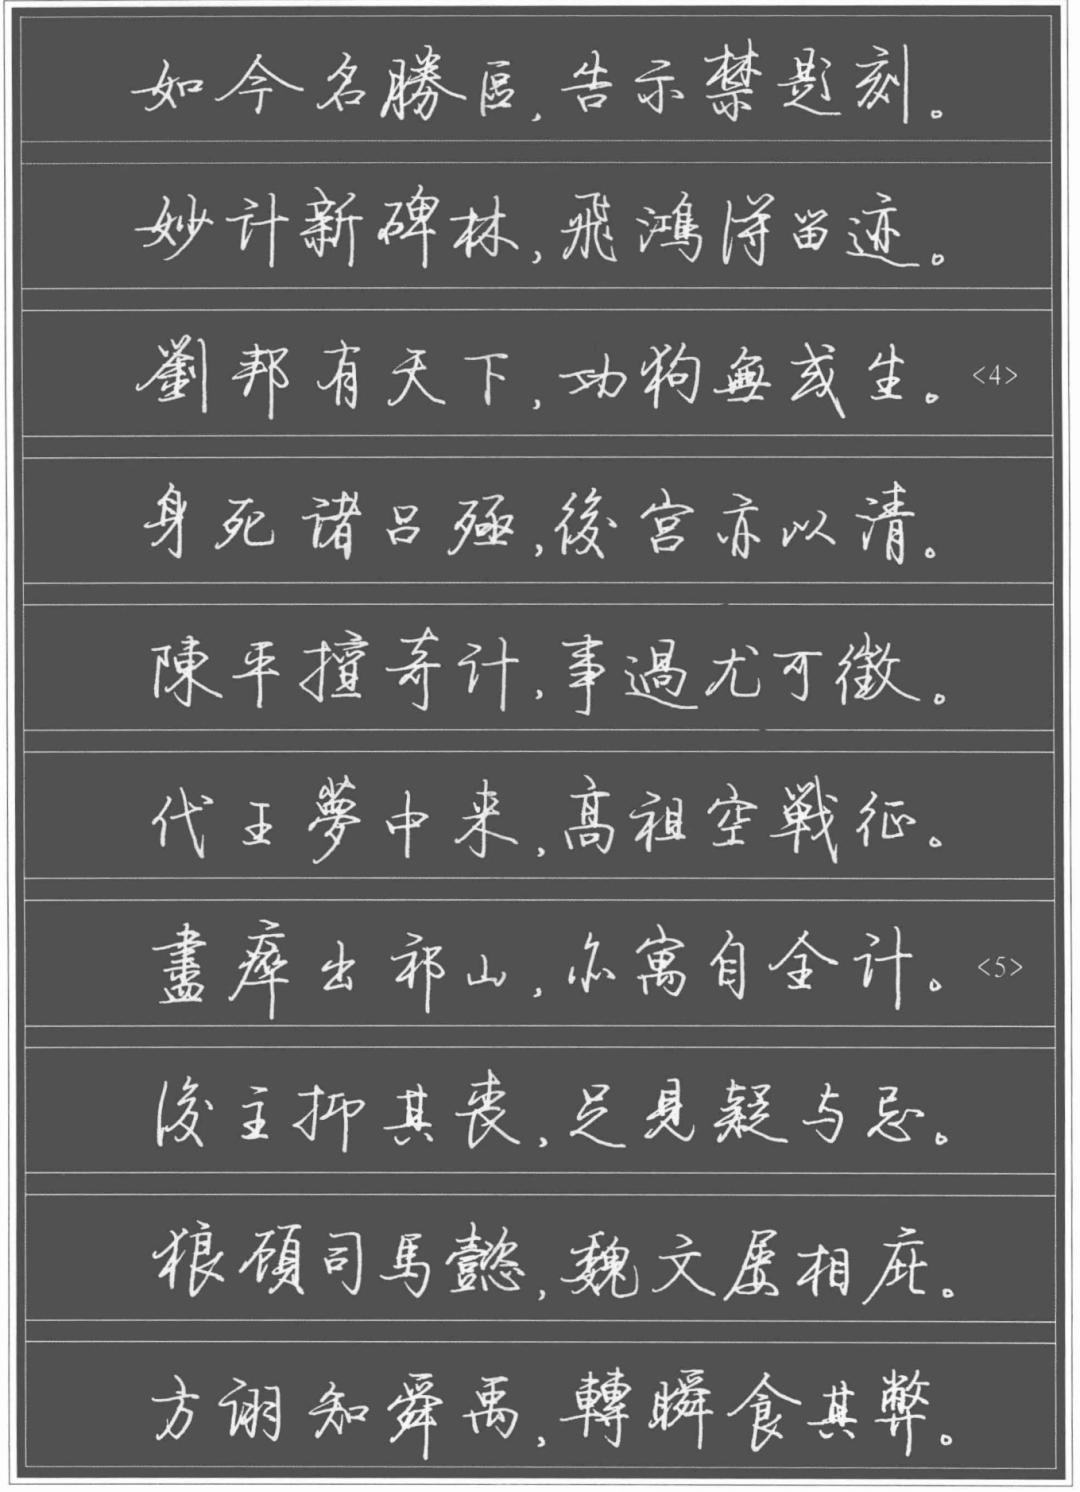 如今名勝區,告示禁題刻。
妙計新碑林,飛鴻得留迹。
劉邦有天下,功狗無或生。<4>
身死諸呂殛,後宮亦以清。
陳平擅奇計,事過尤可徵。
代王夢中来,高祖空戰征。
盡瘁出祁山,亦寓自全计。<5>
後主抑其喪,足見疑与忌。
狼顧司馬懿,魏文屡相庇。
方詡知舜禹,轉瞬食其弊。